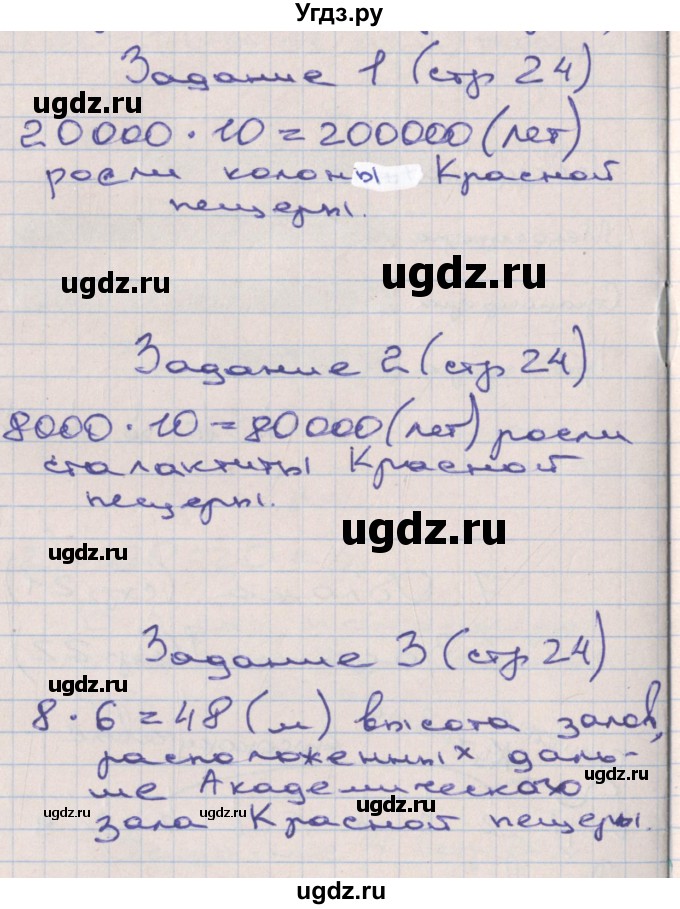 Угдз.ру
Задание 1 (стр 24)
ugdz.ru
20000 · 10 = 200000 (лет)
росли колоны Красной
пещеры.
ugdz.ru
ugdz.ru
Задание 2 (стр 24)
8000 · 10 = 80000 (лет) росли
сталактиты Красной
пещеры.
ugdz.ru
ugdz.ru
Задание 3 (стр 24)
ugdz.ru
8 · 6 = 48 (м) высота залов,
расположенных даль-
ugdz.ru
ше Академического
ugdz.ru
ugdz.ru
зала Красной пещеры.
ugdz.ru
ugdz.ru